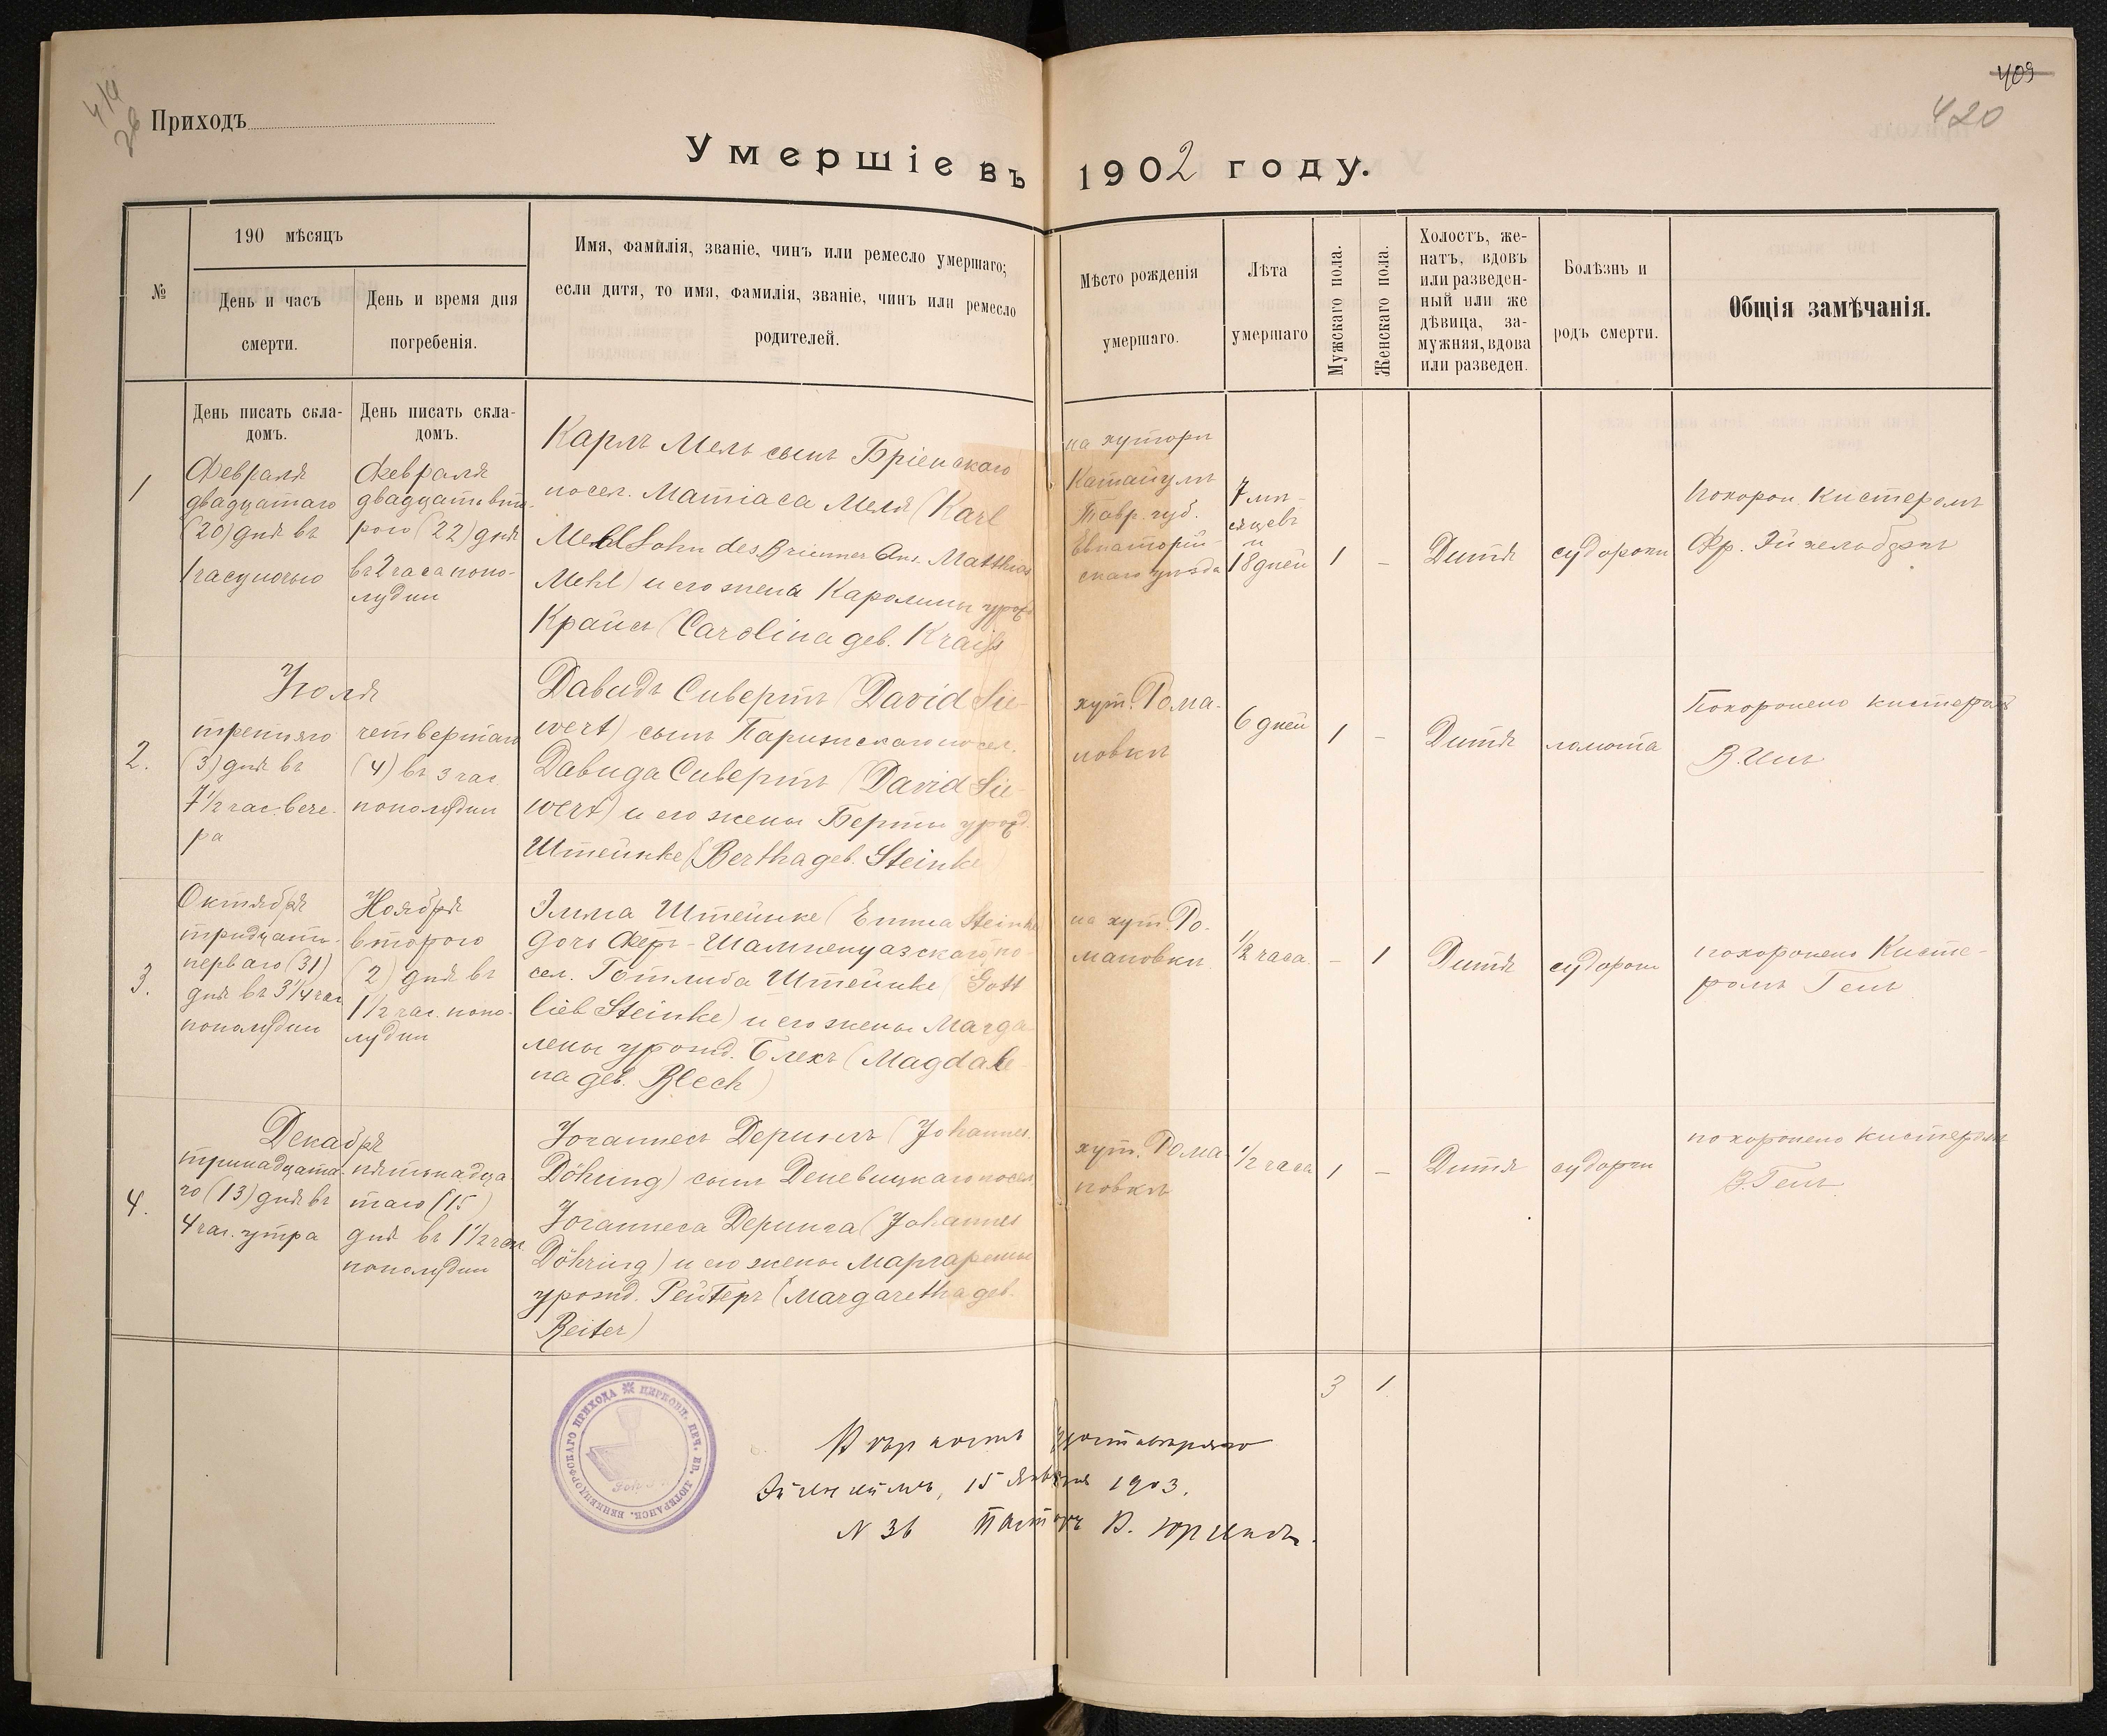 Приходъ
409
420
Умершіе въ 1902 году.
№
190 мѣсяцъ
День и часъ
смерти.
День и время дня
погребенія.
Имя, фамилія, званіе, чинъ или ремесло умершаго;
если дитя, то имя, фамилія, званіе, чинъ или ремесло
родителей.
Мѣсто рожденія
умершаго.
Лѣта
умершаго
Мужскаго пола.
Женскаго пола.
Холостъ, же-
натъ, вдовъ
или разведен-
ный или же
дѣвица, за-
мужняя, вдова
или разведен.
Болѣзнь и
родъ смерти.
Общія замѣчанія.
День писать скла-
домъ.
День писать скла-
домъ.
1
Февраля
двадцатаго
(20) дня въ
1 часу ночью
Февраля
двадцать вто-
рого (22) дня
въ 2 часа попо-
лудни
Карлъ Мель сынъ Бріенскаго
посел. Матіаса Меля (Karl
Mehl Sohn des Brienner Ans. Matthias
Mehl) и его жена Каролины урожд.
Крайсъ (Carolina geb. Kraiss
на хуторѣ
Катагулъ
Тавр. губ.
Евпаторій-
скаго уѣзда
7 мѣ-
сяцевъ
и
18 дней
1
-
Дитя
судороки
похорон. Кистеромъ
Фр.
2.
Іюля
третьяго
(3) дня въ
7 1/2 час. вече-
ра
четвертаго
(4) въ 3 час
пополудни
Давидъ Сивертъ (David Sie-
wert) сынъ Парижскаго посел.
Давида Сивертъ (David Sie-
wert) и его жены Берты урожд.
Штейнке (Bertha geb. Steinke
хут. Рома-
новкѣ
6 дней
1
-
Дитя
ломота
Похоронено кистеромъ
3.
Октября
тридцать-
перваго (31)
дня въ 3 1/4 час
пополудни
Ноября
второго
(2) дня въ
1 1/2 час. попо-
лудни
Эмма Штейнке (Emma Steinke
дочь Фер-Шампенуазскаго по-
сел. Готлиба Штейнке (Gott
lieb Steinke) и его жены Магда-
лены урожд. Блехъ (Magdale-
na geb. Blech)
на хут. Ро-
мановкѣ
1/2 часа.
-
1
Дитя
судороки
похоронено Кисте-
ромъ Генъ
4.
Декабря
тринадцата-
го (13) дня въ
4 час. утра
пятьнадца-
таго (15)
дня въ 1 1/2 час
пополудни
Іоганнесъ Дерингъ (Johannes
Döhring) сынъ Деневицкаго посел.
Іоганнеса Деринга (Johannes
Döhring) и его жены Маргареты
урожд. Рейтеръ (Margaretha geb.
Reiter)
хут. Рома-
новкѣ
1/2 часа
1
-
Дитя
судорги
похоронено кистеромъ
В. Генъ
3
1.
ЦЕРКОВН. ПЕЧ. ЕВ. ЛЮТЕРАНСК. ПРИХОДА
Вѣрность удостовѣряю
15 Января 1903.
N 36 Пасторъ В.